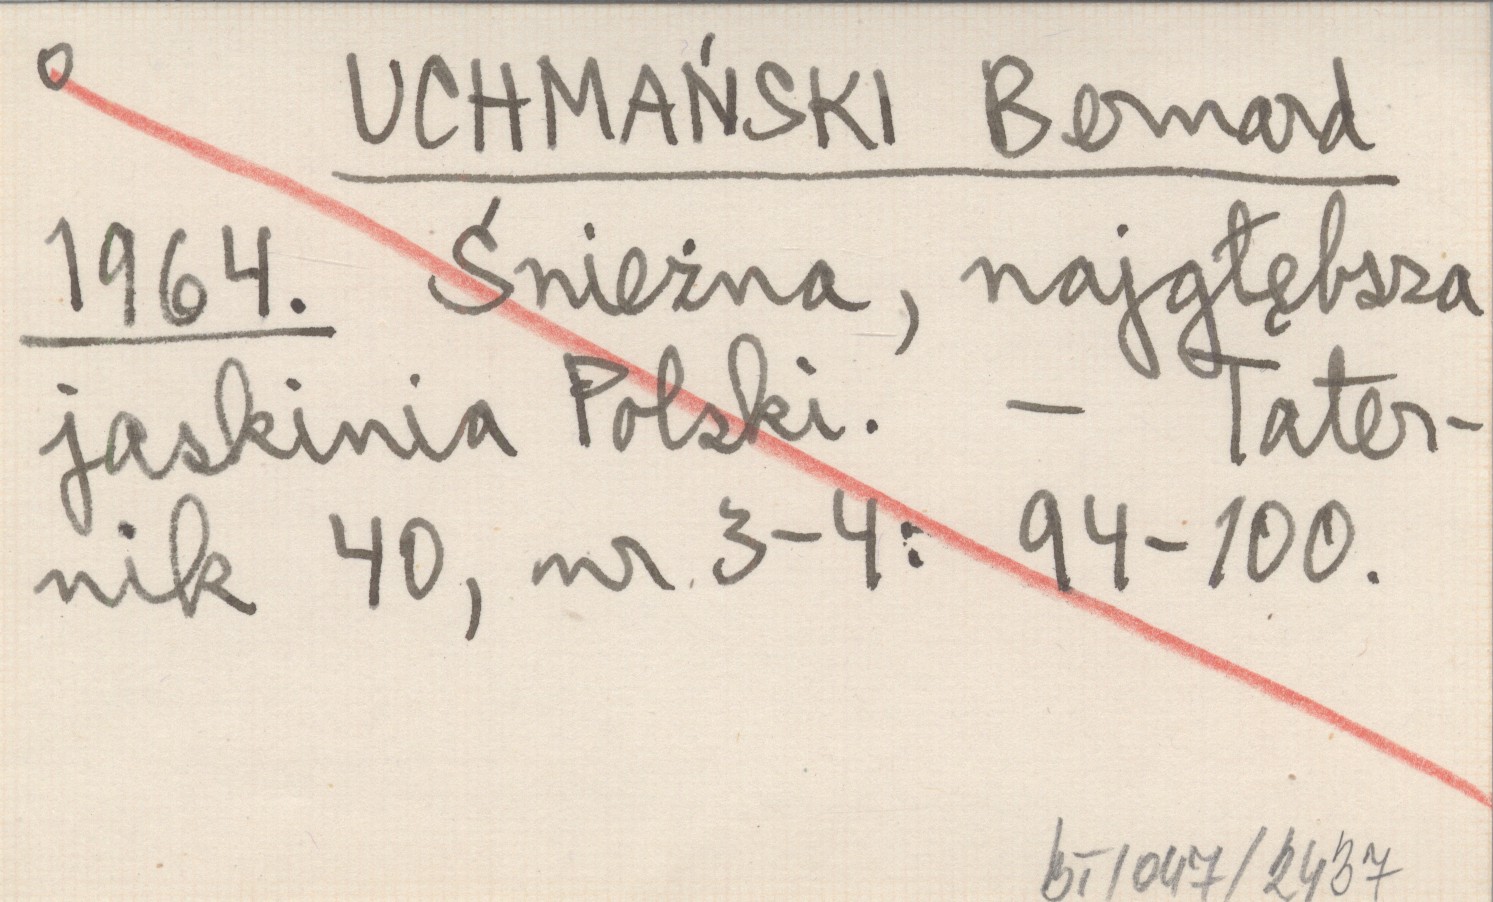 O
UCHMAŃSKI Bernard
1964. Śnieżna, najgłębsza
jaskinia Polski. – Tater-
nik 40, nr 3-4: 94-100.
BI/047/2437